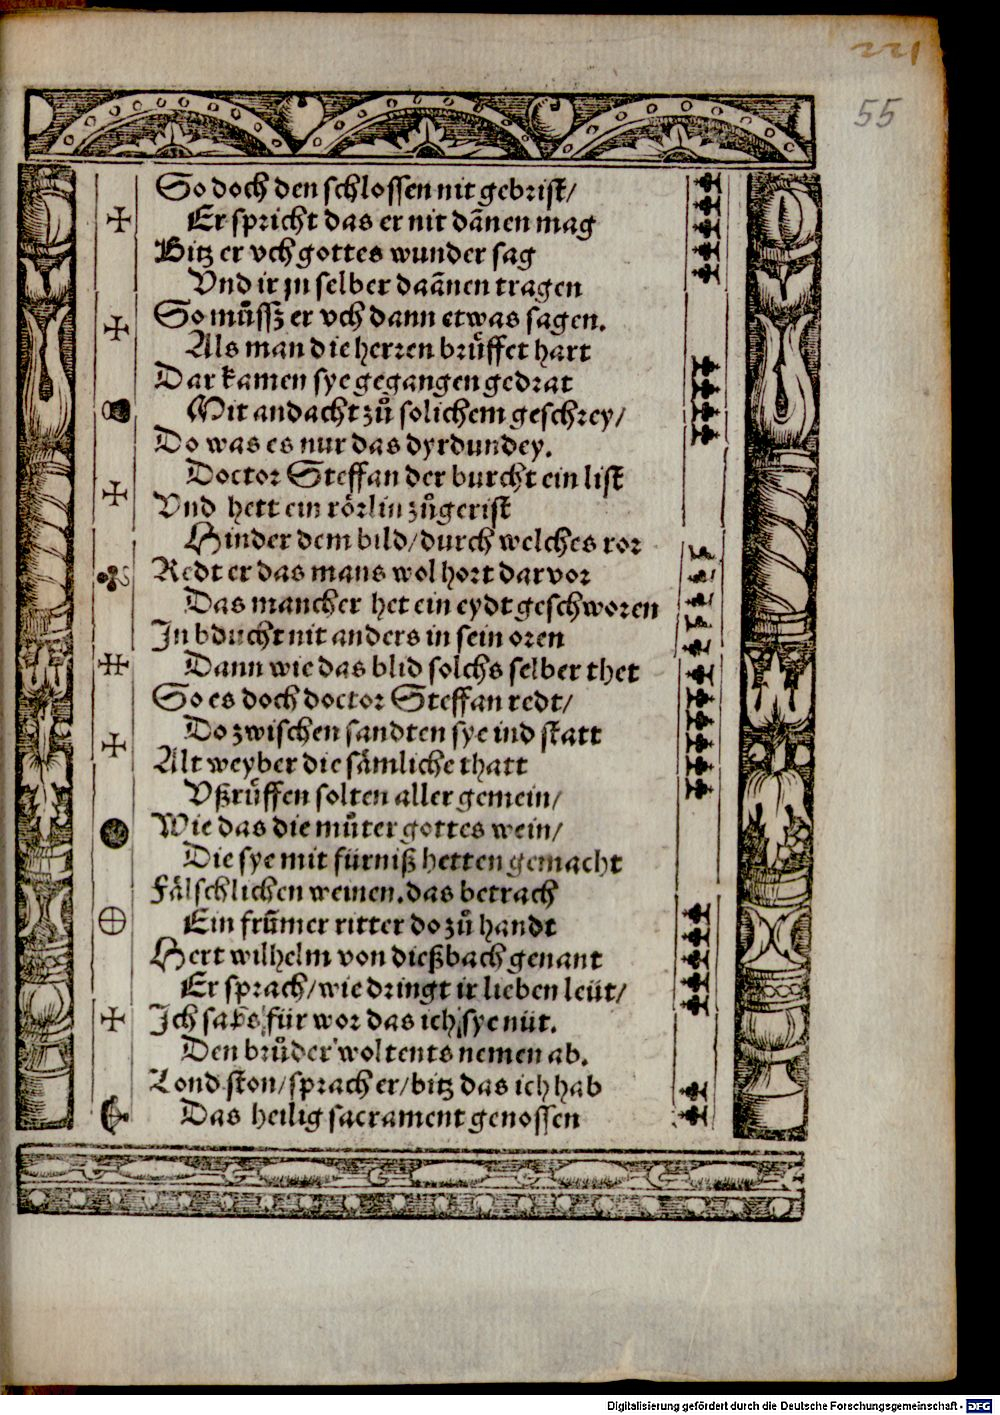 221
55
So doch den schlossen nit gebrist/
Er spricht das er nit dãnen mag
Bitz er vch gottes wunder sag
Vnd ir jn selber daãnen tragen
So muͤssz er vch dann etwas sagen.
Als man die herren bruͤffet hart
Dar kamen sye gegangen gedrat
Mit andacht zuͦ solichem geschrey/
Do was es nur das dyrdundey.
Doctor Steffan der burcht ein list
Vnd hett ein roͤrlin zuͦgerist
Hinder dem bild/durch welches ror
Redt er das mans wol hort darvor
Das mancher het ein eydt geschworen
In bducht nit anders in sein oren
Dann wie das blid solchs selber thet
So es doch doctor Steffan redt/
Do zwischen sandten sye ind statt
Alt weyber die saͤmliche thatt
Vßruͤffen solten aller gemein/
Wie das die muͦter gottes wein/
Die sye mit fürniß hetten gemacht
Faͤlschlichen weinen.das betrach
Ein frum̃er ritter do zuͦ handt
Hert wilhelm von dießbach genant
Er sprach/wie dringt ir lieben leüt/
Ich für wor das ich sye nüt.
Den bruͦder woltents nemen ab.
Lond ston/sprach er/bitz das ich hab
Das heilig sacrament genossen
Digitalisierung gefördert durch die Deutsche Forschungsgemeinschaft - DFG